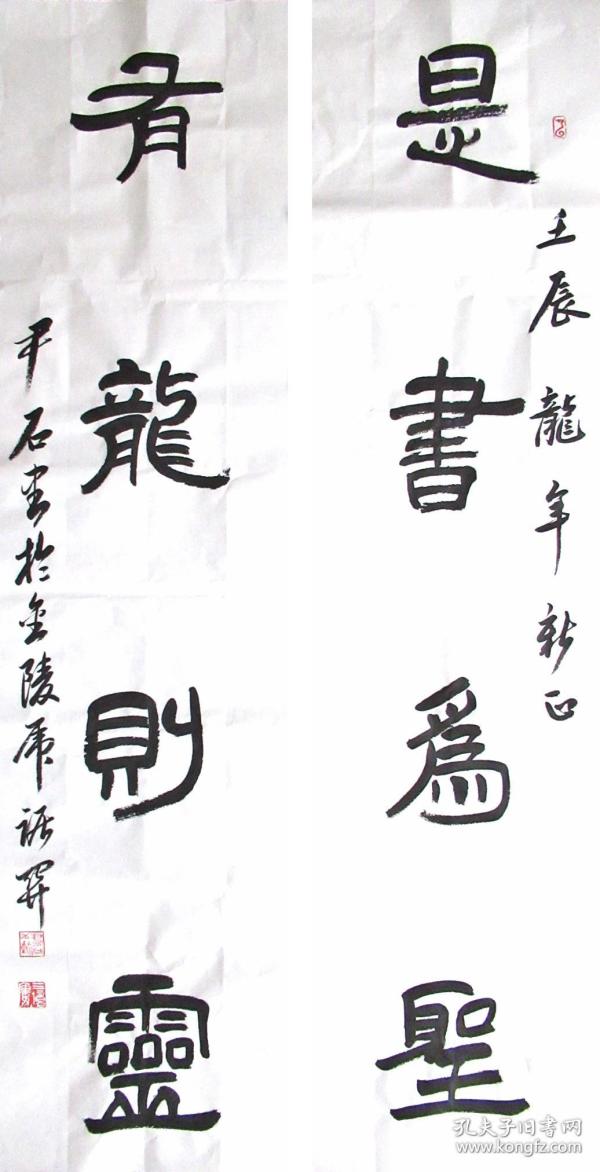 壬辰龍年新正
是書爲聖
有龍則靈
尹石書於金陵虎踞關
孔夫子旧书网
www.kongfz.com